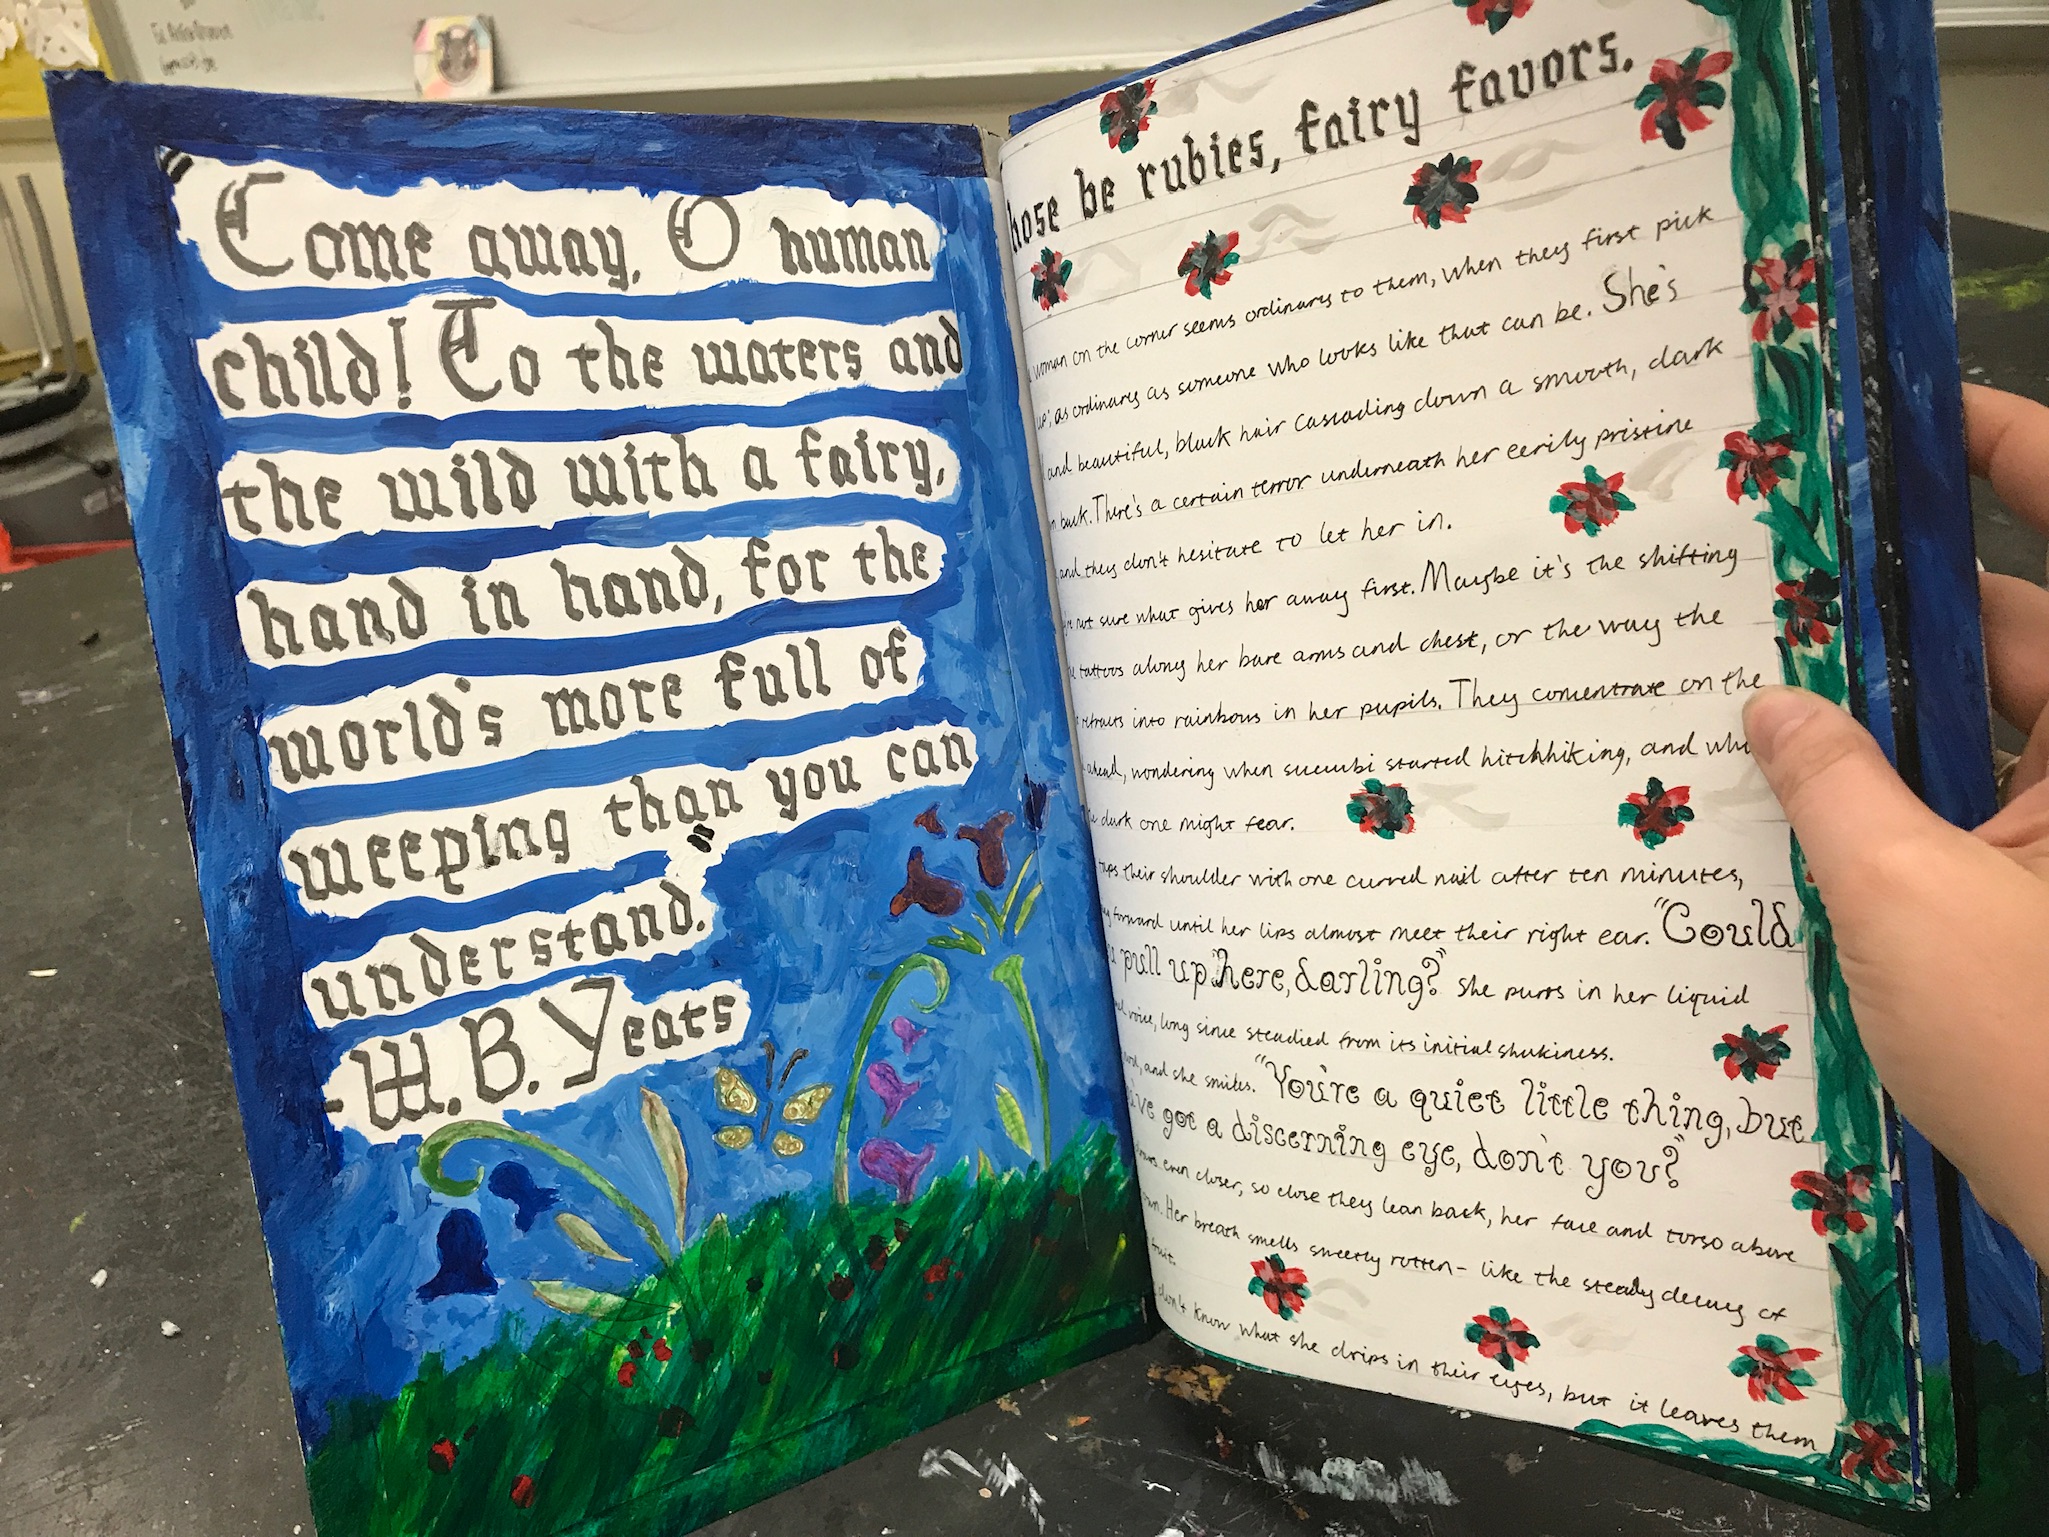 Come away, O human
child! To the waters and
the wild with a fairy,
hand in hand, for the
world's more full of
weeping than you can
understand.
-W. B. Yeats
hose be rubies, fairy favors.
woman on the corner seems ordinary to them, when they first pick
up; as ordinary as someone who looks like that can be. She's
and beautiful, black hair cascading down a smooth, dark
back. There's a certain terror underneath her eerily pristine
and they don't hesitate to let her in.
not sure what gives her away first. Maybe it's the shifting
tattoos along her bare arms and chest, or the way the
retracts into rainbows in her pupils. They concentrate on the
ahead, wondering when succubi started hitchhiking, and
dark one might fear.
taps their shoulder with one curved nail after ten minutes,
forward until her lips almost meet their right ear. "Could
pull up here, darling?" she purrs in her liquid
voice, long since steadied from its initial shakiness.
and she smiles. "You're a quiet little thing, but
've got a discerning eye, don't you?"
even closer, so close they lean back, her face and torso above
Her breath smells sweetly rotten- like the steady decay of
fruit.
don't know what she drips in their eyes, but it leaves them